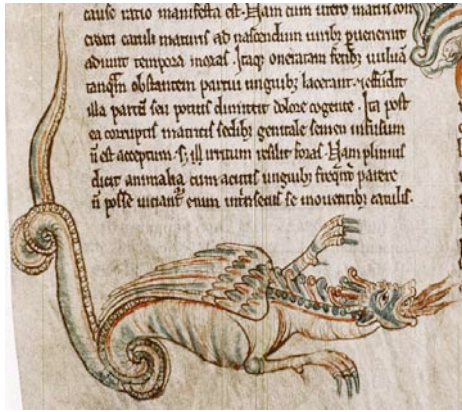 cause ratio manifesta est. Nam cum utero matris con
catuli maturis ad nascendum uiribꝫ puenerint
tempora moras. Itaqꝫ oneratam fetibꝫ uuluā
tanqm̄ obstantem partui unguibꝫ lacerant.
illa partū seu potius dimittit dolore cogente. Ita post
ea corruptis matricis sedibꝫ genitale semen infusum
n̄ est acceptum. irritum resilit foras. Nam plinius
dicit animalia cum acutis unguibꝫ parere
n̄ posse enim se mouentibꝫ catulis.